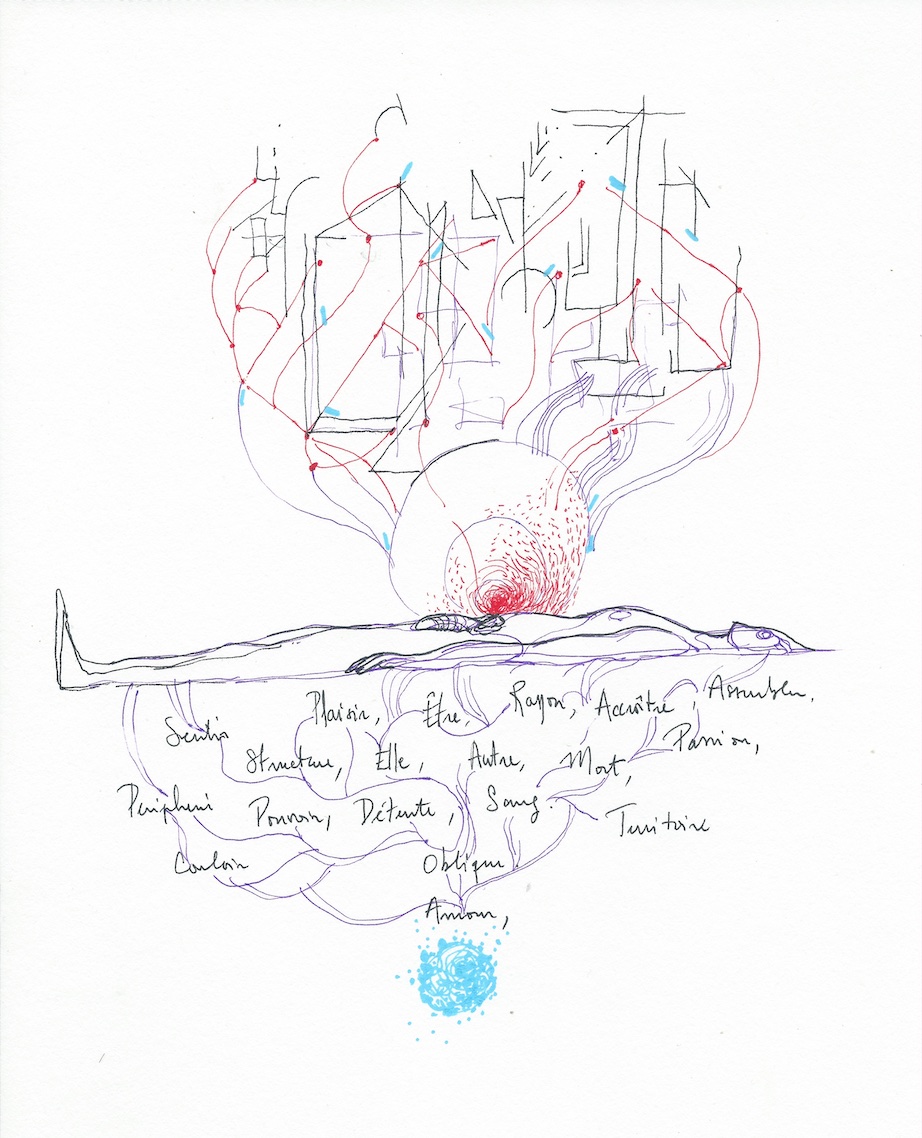 Plaisir, Être, Rayon, Accroître, Assembler,
Sentir
Structure, Elle, Autre, Mort, Passion,
Peripherie
Pouvoir, Détente, Sang. Territoire
Couloir Oblique
Amour,